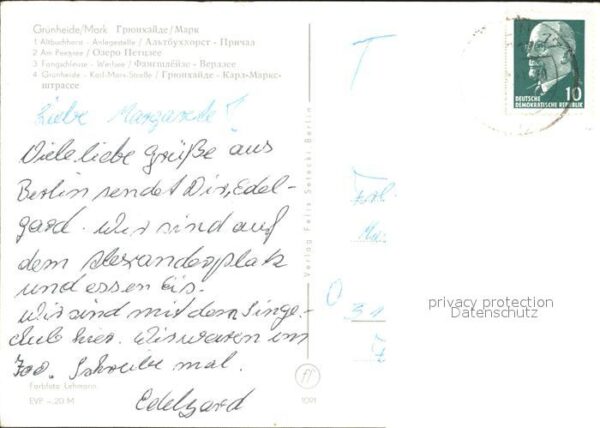 Grünheide/Mark Грюнхайде/Марк
1 Altbuchhorst - Anlegestelle / Альтбуххорст - Причал
2 Am Peetzsee / Озеро Петцзее
3 Fangschleuse - Werlsee / Фангшлёйзе - Верлзее
4 Grünheide - Karl-Marx-Straße / Грюнхайде - Карл-Маркс-
штрассе
Liebe Margarete!
Viele liebe Grüße aus
Berlin sendet Dir, Edel-
gard. Wir sind auf
dem Alexanderplatz
und essen Eis.
Wir sind mit dem Singe-
club hier. Wir waren im
Zoo. Schreibe mal.
Edelgard
Farbfoto Lehmann
EVP -,20 M
Verlag Felix Setecki Berlin
ff
T
DEUTSCHE
DEMOKRATISCHE REPUBLIK
10
Frl.
31
privacy protection
Datenschutz